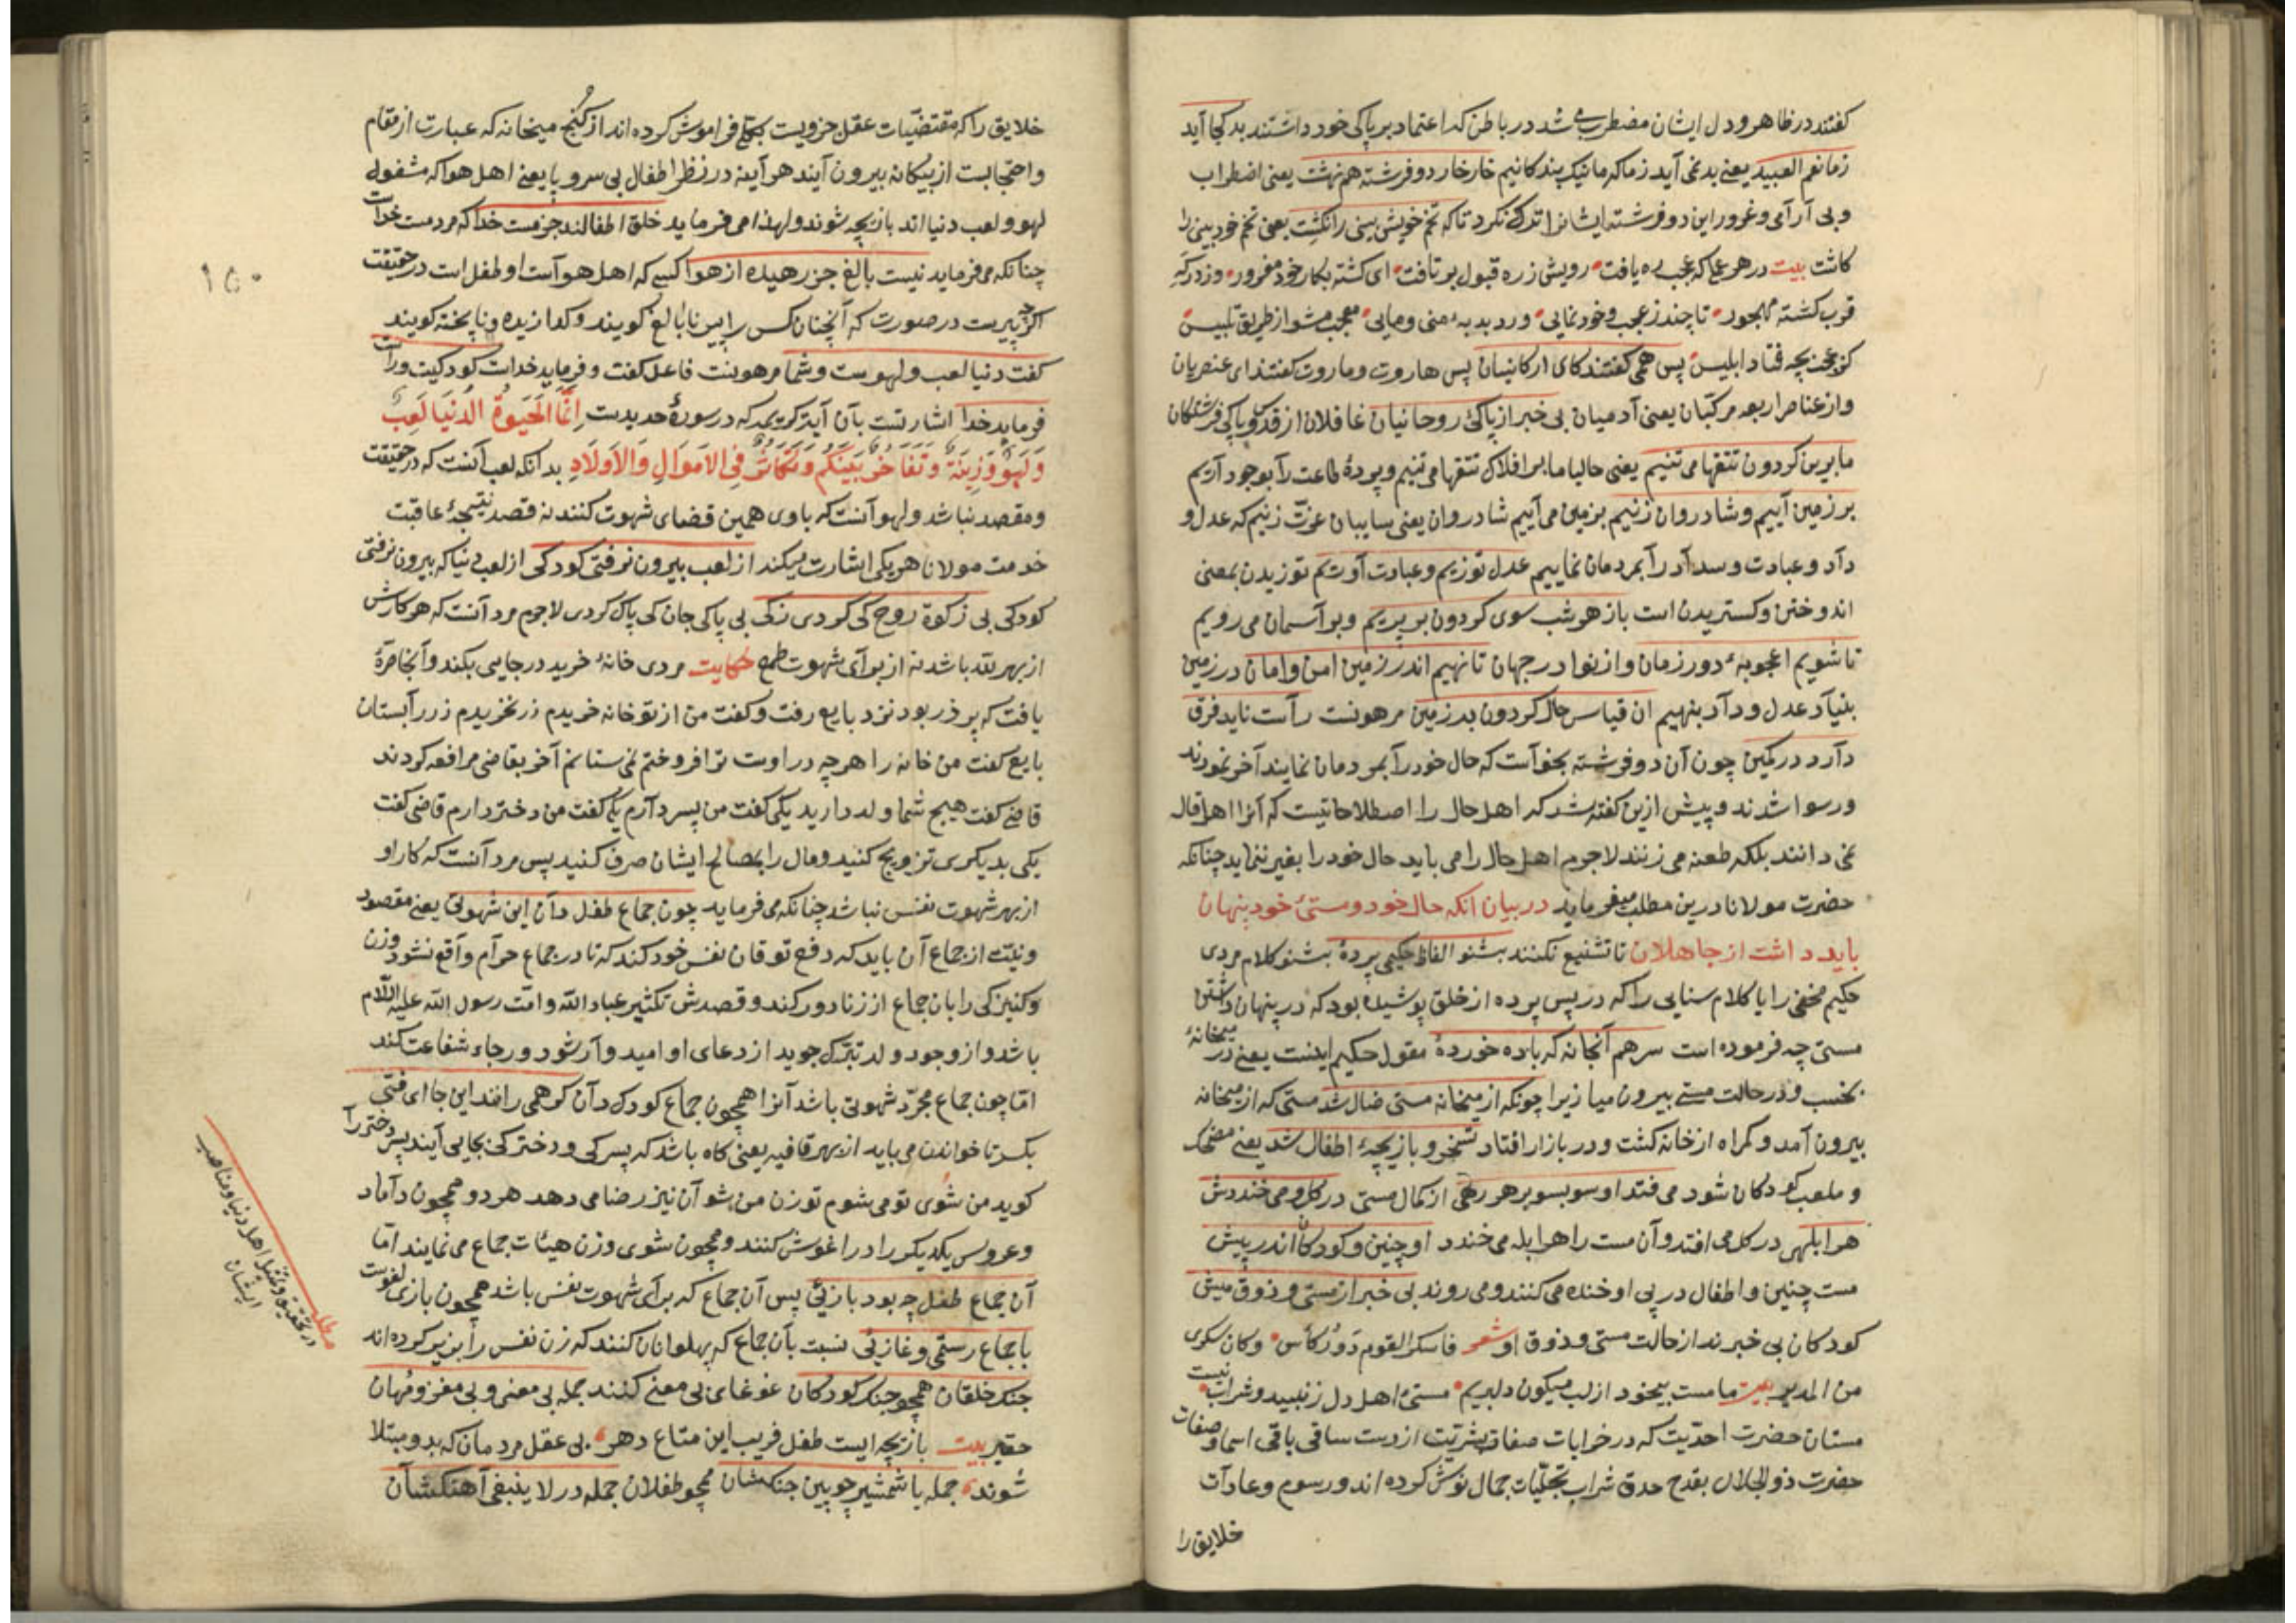 کفتند در ظاهر و دل ایشان مضطرب می شد در باطن که اعتماد بر پاکی خود داشتند بد کجا آید
زما نعم العبید یعنی بد نمی آید زما که ما نیک بندکانیم خار خار دو فرشته هم نهشت یعنی اضطراب
و بی آرامی و غرور این دو فرشته ایشانرا ترک نکرد تا که تخم خویش بینی را نکشت یعنی تخم خود بینی را
کاشت بیت در هر عمل که عجب ره یافت رویش ز ره قبول بر تافت ای کشته بکار خود مغرور وز درکه
قرب کشته مهجور تا چند ز عجب و خود نمایی ور دبدبهٔ منی و مایی معجب مشو از طریق تلبیس
کز عجب بچه فتاد ابلیس پس همی کفتند کای ارکانیان پس هاروت و ماروت کفتند ای عنصریان
و از عناصر اربعه مرکبان یعنی آدمیان بی خبر از پاکی روحانیان غافلان از قدس و پاکی فرشتکان
ما برین کردون تتقها می تنیم یعنی حالیا ما بر افلاک تتقها می تنیم و پردهٔ طاعت را بوجود آریم
بر زمین آییم و شادروان زنیم بزمین می آییم شادروان یعنی سایبان عزت زنیم که عدل و
داد و عبادت و سداد را بمردمان نماییم عدل توزیم و عبادت آوریم توزیدن بمعنی
اندوختن و کستریدن است باز هر شب سوی کردون بر پریم و بر آسمان می رویم
تا شویم اعجوبهٔ دور زمان و از نوا در جهان تا نهیم اندر زمین امن و امان در زمین
بنیاد عدل و داد بنهیم ان قیاس حال کردون بر زمین مرهونست راست ناید فرق
دارد در کمین چون آن دو فرشته بخواست که حال خود را بمردمان نمایند آخر نمودند
و رسوا شدند و پیش ازین کفته شد که اهل حال را اصطلاحاتیست که آنرا اهل قال
نمی دانند بلکه طعنه می زنند لاجرم اهل حال را می باید حال خود را بغیر ننماید چنانکه
حضرت مولانا درین مطلب میفرماید در بیان انکه حال خود و مستئ خود پنهان
باید داشت از جاهلان تا تشفیع نکنند بشنو الفاظ حکیمی پردهٔ بشنو کلام مردی
حکیم مخفی را یا کلام سنایی را که در پس پرده از خلق پوشیده بود که در پنهان داشتن
مستی چه فرموده است سر هم آنجا نه که باده خوردهٔ مقول حکیم اینست یعنی در میخانهٔ
بخسب و در حالت مستی بیرون میا زیرا چونکه از میخانه مستی ضال شد مستی که از میخانه
بیرون آمد و کمراه از خانه کشت و در بازار افتاد تسخر و بازیچهٔ اطفال شد یعنی مضحک
و ملعب کودکان شود می فتد او سو بسو بر هر رهی از کمال مستی در کل و می خنددش
هر ابلهی در کل می افتد و آن مست را هر ابله می خندد او چنین و کودکان اندر پیش
مست چنین و اطفال در پی او خنده می کنند و می روند بی خبر از مستی و ذوق میش
کودکان بی خبرند از حالت مستی و ذوق او شعر فاسکر القوم دور کأس وکان سکری
من المدیر بیت ما مست بیخود از لب میکون دلبریم مستی اهل دل ز نبید و شراب نیست
مستان حضرت احدیت که در خرابات صفات بشریت از دست ساقی باقی اسما و صفات
حضرت ذو الجلال بقدح حدق شراب تجلیات جمال نوش کرده اند و رسوم و عادات
خلایق را
خلایق را که مقتضیات عقل جزویست بکلی فراموش کرده اند از کنج میخانه که عبارت از مقام
و احتجابست از بیکانه بیرون آیند هر آینه در نظر اطفال بی سر و پا یعنی اهل هوا که مشغوله
لهو و لعب دنیا اند بازیچه شوند و لهذا می فرماید خلق اطفالند جز مست خدا که مرد مست خداست
چنانکه می فرماید نیست بالغ جز رهیده از هوا کسی که اهل هواست او طفل است در حقیقت
اکرچه پیرست در صورت که آنچنان کس را پیر نابالغ کویند و کدا زیده و ناپخته کویند
کفت دنیا لعب و لهوست و شما مرهونست فاعل کفت و فرماید خداست کودکیت و راست
فرماید خدا اشارتست بآن آیت کریمه که در سورهٔ حدیدست اِنَّمَا الْحَیٰوةُ الدُّنْیَا لَعِبٌ
وَلَهْوٌ وَزِینَةٌ وَتَفَاخُرٌ بَیْنَکُمْ وَتَکَاثُرٌ فِی الْاَمْوَالِ وَالْاَوْلَادِ بدانکه لعب آنست که در حقیقت
و مقصد نباشد و لهو آنست که باوی همین قضای شهوت کنند نه قصد نتیجهٔ عاقبت
خدمت مولانا هر یکی اشارت میکند از لعب بیرون نرفتی کودکی از لعب دنیا که بیرون نرفتی
کودکی بی زکوة روح کی کردی زکی بی پاکی جان کی پاک کردی لاجرم مرد آنست که هر کارش
از بهر الله باشد نه از برای شهوت طمع حکایت مردی خانهٔ خرید در جایی بکند و آنجا صرهٔ
یافت که پر زر بود نزد بایع رفت و کفت من از تو خانه خریدم زر نخریدم زر را بستان
بایع کفت من خانه را هر چه در اوست ترا فروختم نمی ستانم آخر بقاضی مرافعه کردند
قاضی کفت هیچ شما ولد دارید یکی کفت من پسر دارم یکی کفت من دختر دارم قاضی کفت
یکی بدیکری تزویج کنید و مال را بمصالح ایشان صرف کنید پس مرد آنست که کار او
از بهر شهوت نفس نباشد چنانکه می فرماید چون جماع طفل دان این شهوتی یعنی مقصود
و نیت از جماع آن باید که دفع توقان نفس خود کند که تا در جماع حرام واقع نشود و زن
و کنیزکی را بان جماع از زنا دور کند و قصدش تکثیر عباد الله و امت رسول الله علیه السلام
باشد و از وجود ولد تبرک جوید از دعای او امیدوار شود و رجاء شفاعت کند
اما چون جماع مجرد شهوتی باشد آنرا همچون جماع کودک دان که همی رانند این جا ای فتی
بکسر تا خواندن می باید از بهر قافیه یعنی کاه باشد که پسرکی و دخترکی بجایی آیند پسر دختر را
کوید من شوی تو می شوم تو زن من شو آن نیز رضا می دهد هر دو همچون داماد
و عروس یکدیکر را در اغوش کنند و همچون شوی و زن هیئات جماع می نمایند اما
آن جماع طفل چه بود بازیی پس آن جماع که برای شهوت نفس باشد همچون بازی لغوست
با جماع رستمی و غازیی نسبت بآن جماع که پهلوانان کنند که زن نفس را بزیر کرده اند
جنک خلقان همچو جنک کودکان غوغای بی معنی کنند جمله بی معنی و بی مغز و مهان
حقیر بیت بازیچه ایست طفل فریب این متاع دهر بی عقل مردمان که بدو مبتلا
شوند جمله با شمشیر چوبین جنکشان همچو طفلان جمله در لا ینبغی آهنکشان
۱۵۰
مطلب
در تحقیق اهل دنیا و مناصب
ایشان